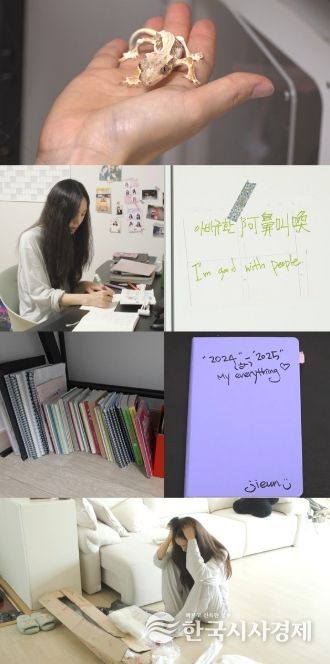 아비규환 阿鼻叫喚
I'm good with people
"2024" "2025"
My everything♡
jieun
한국시사경제